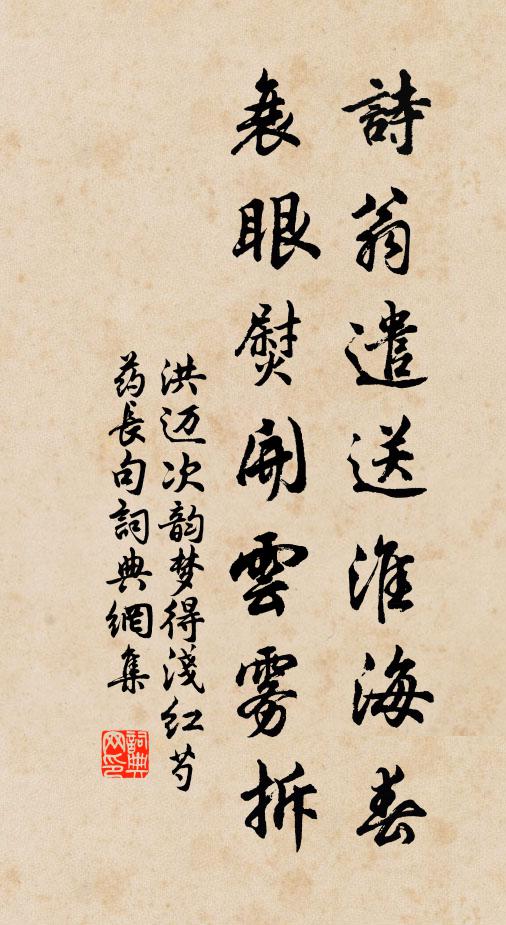 詩翁遣送淮海春
衰眼熨開雲霧拆
洪迈次韵梦得淺红芍
药長句詞典網集
詞典网印